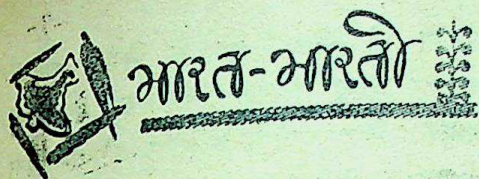 भारत-भारती